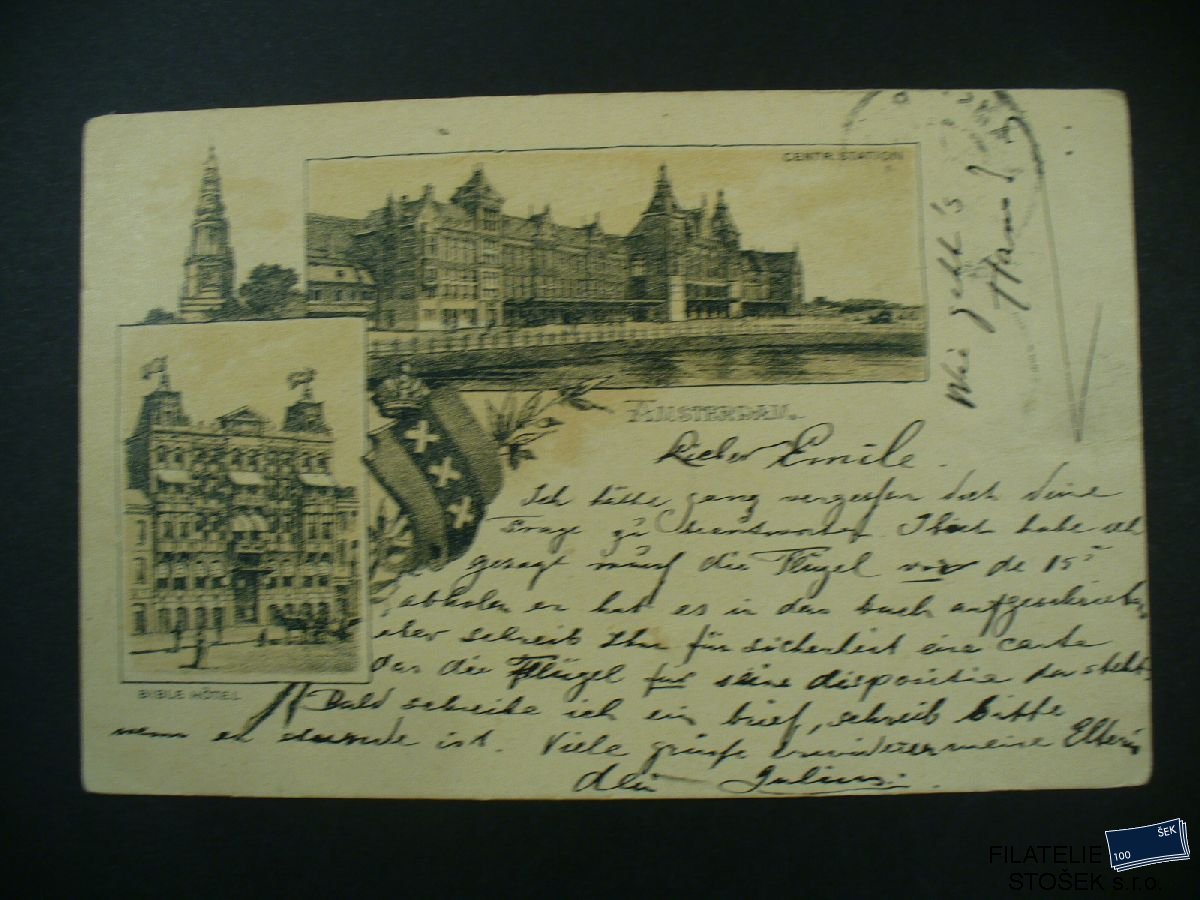 CENTR. STATION
AMSTERDAM.
BIBLE HÔTEL
Wie geht's
Hans?
Lieber Emile.
Ich hätte ganz vergessen doch deine
Frage zu beantworten. habe
gesagt die Flügel vor de 15
abholen er hat es in das buch aufgeschrieben
aber schreib Ihm für sicherheit eine carte
das die Flügel für seine dispositie steht.
Bald schreibe ich ein brief, schreib bitte
wenn er ist. Viele grüsse meine Eltern
dein Julius.
FILATELIE
STOŠEK s.r.o.
100 ŠEK